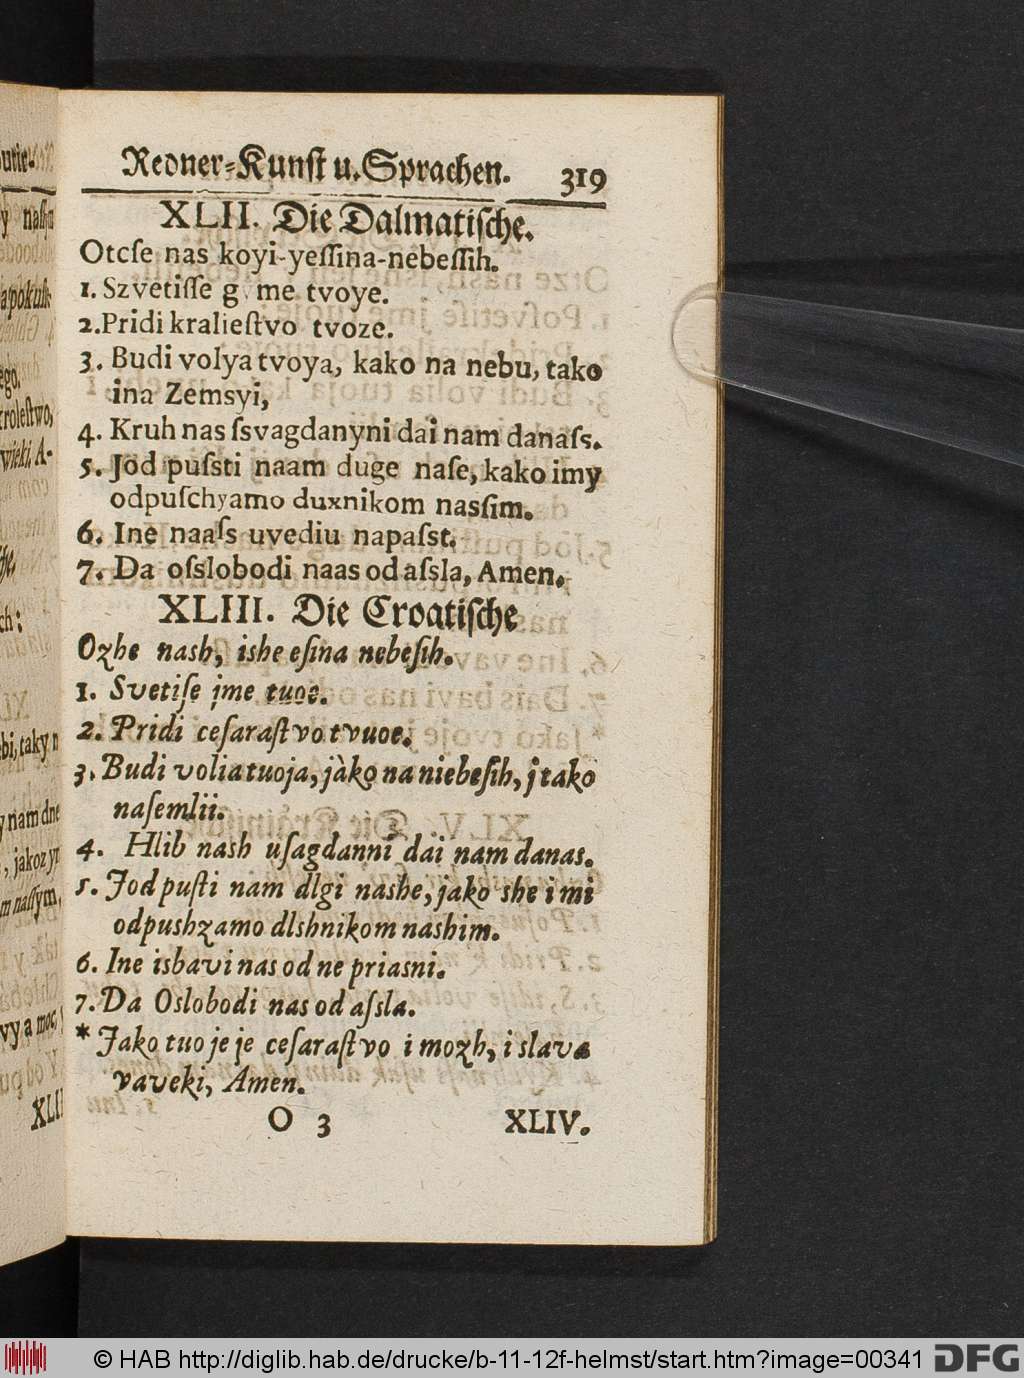 Redner-Kunst u. Sprachen. 319
XLII. Die Dalmatische.
Otcſe nas koyi-yeſſina-nebeſſih.
1. Szvetiſſe g me tvoye.
2. Pridi kralieſtvo tvoze.
3. Budi volya tvoya, kako na nebu, tako
ina Zemsyi,
4. Kruh nas ſsvagdanyni dai nam danaſs.
5. Jod puſsti naam duge naſe, kako imy
odpuſchyamo duxnikom nasſim.
6. Ine naaſs uvediu napaſst.
7. Da oſslobodi naas od aſsla, Amen.
XLIII. Die Croatische
Ozhe nash, ishe eſina nebeſih.
1. Svetiſe jme tuoe.
2. Pridi ceſaraſtvo tvuoe.
3. Budi volia tuoja, jàko na niebeſih, j tako
naſemlii.
4. Hlib nash uſagdanni dai nam danas.
5. Jod puſti nam dlgi nashe, jako she i mi
odpushzamo dlshnikom nashim.
6. Ine isbavi nas od ne priasni.
7. Da Oslobodi nas od aſsla.
* Jako tuo je je ceſaraſtvo i mozh, i slava
vaveki, Amen.
O 3 XLIV.
© HAB http://diglib.hab.de/drucke/b-11-12f-helmst/start.htm?image=00341 DFG